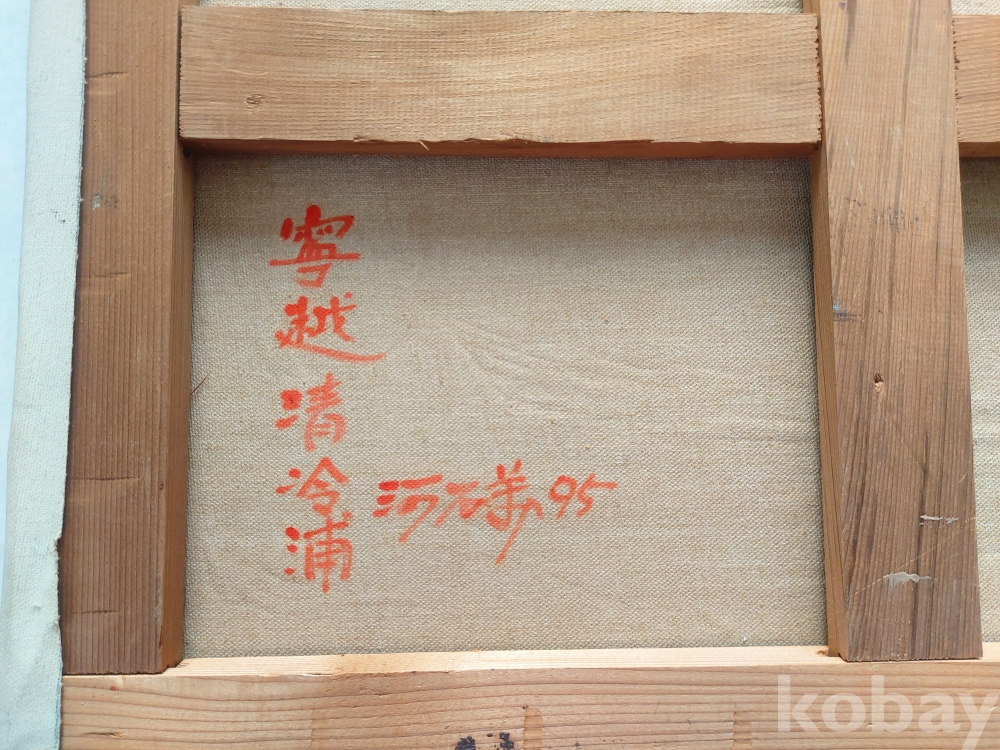 寧越清冷浦
河石 95
kobay